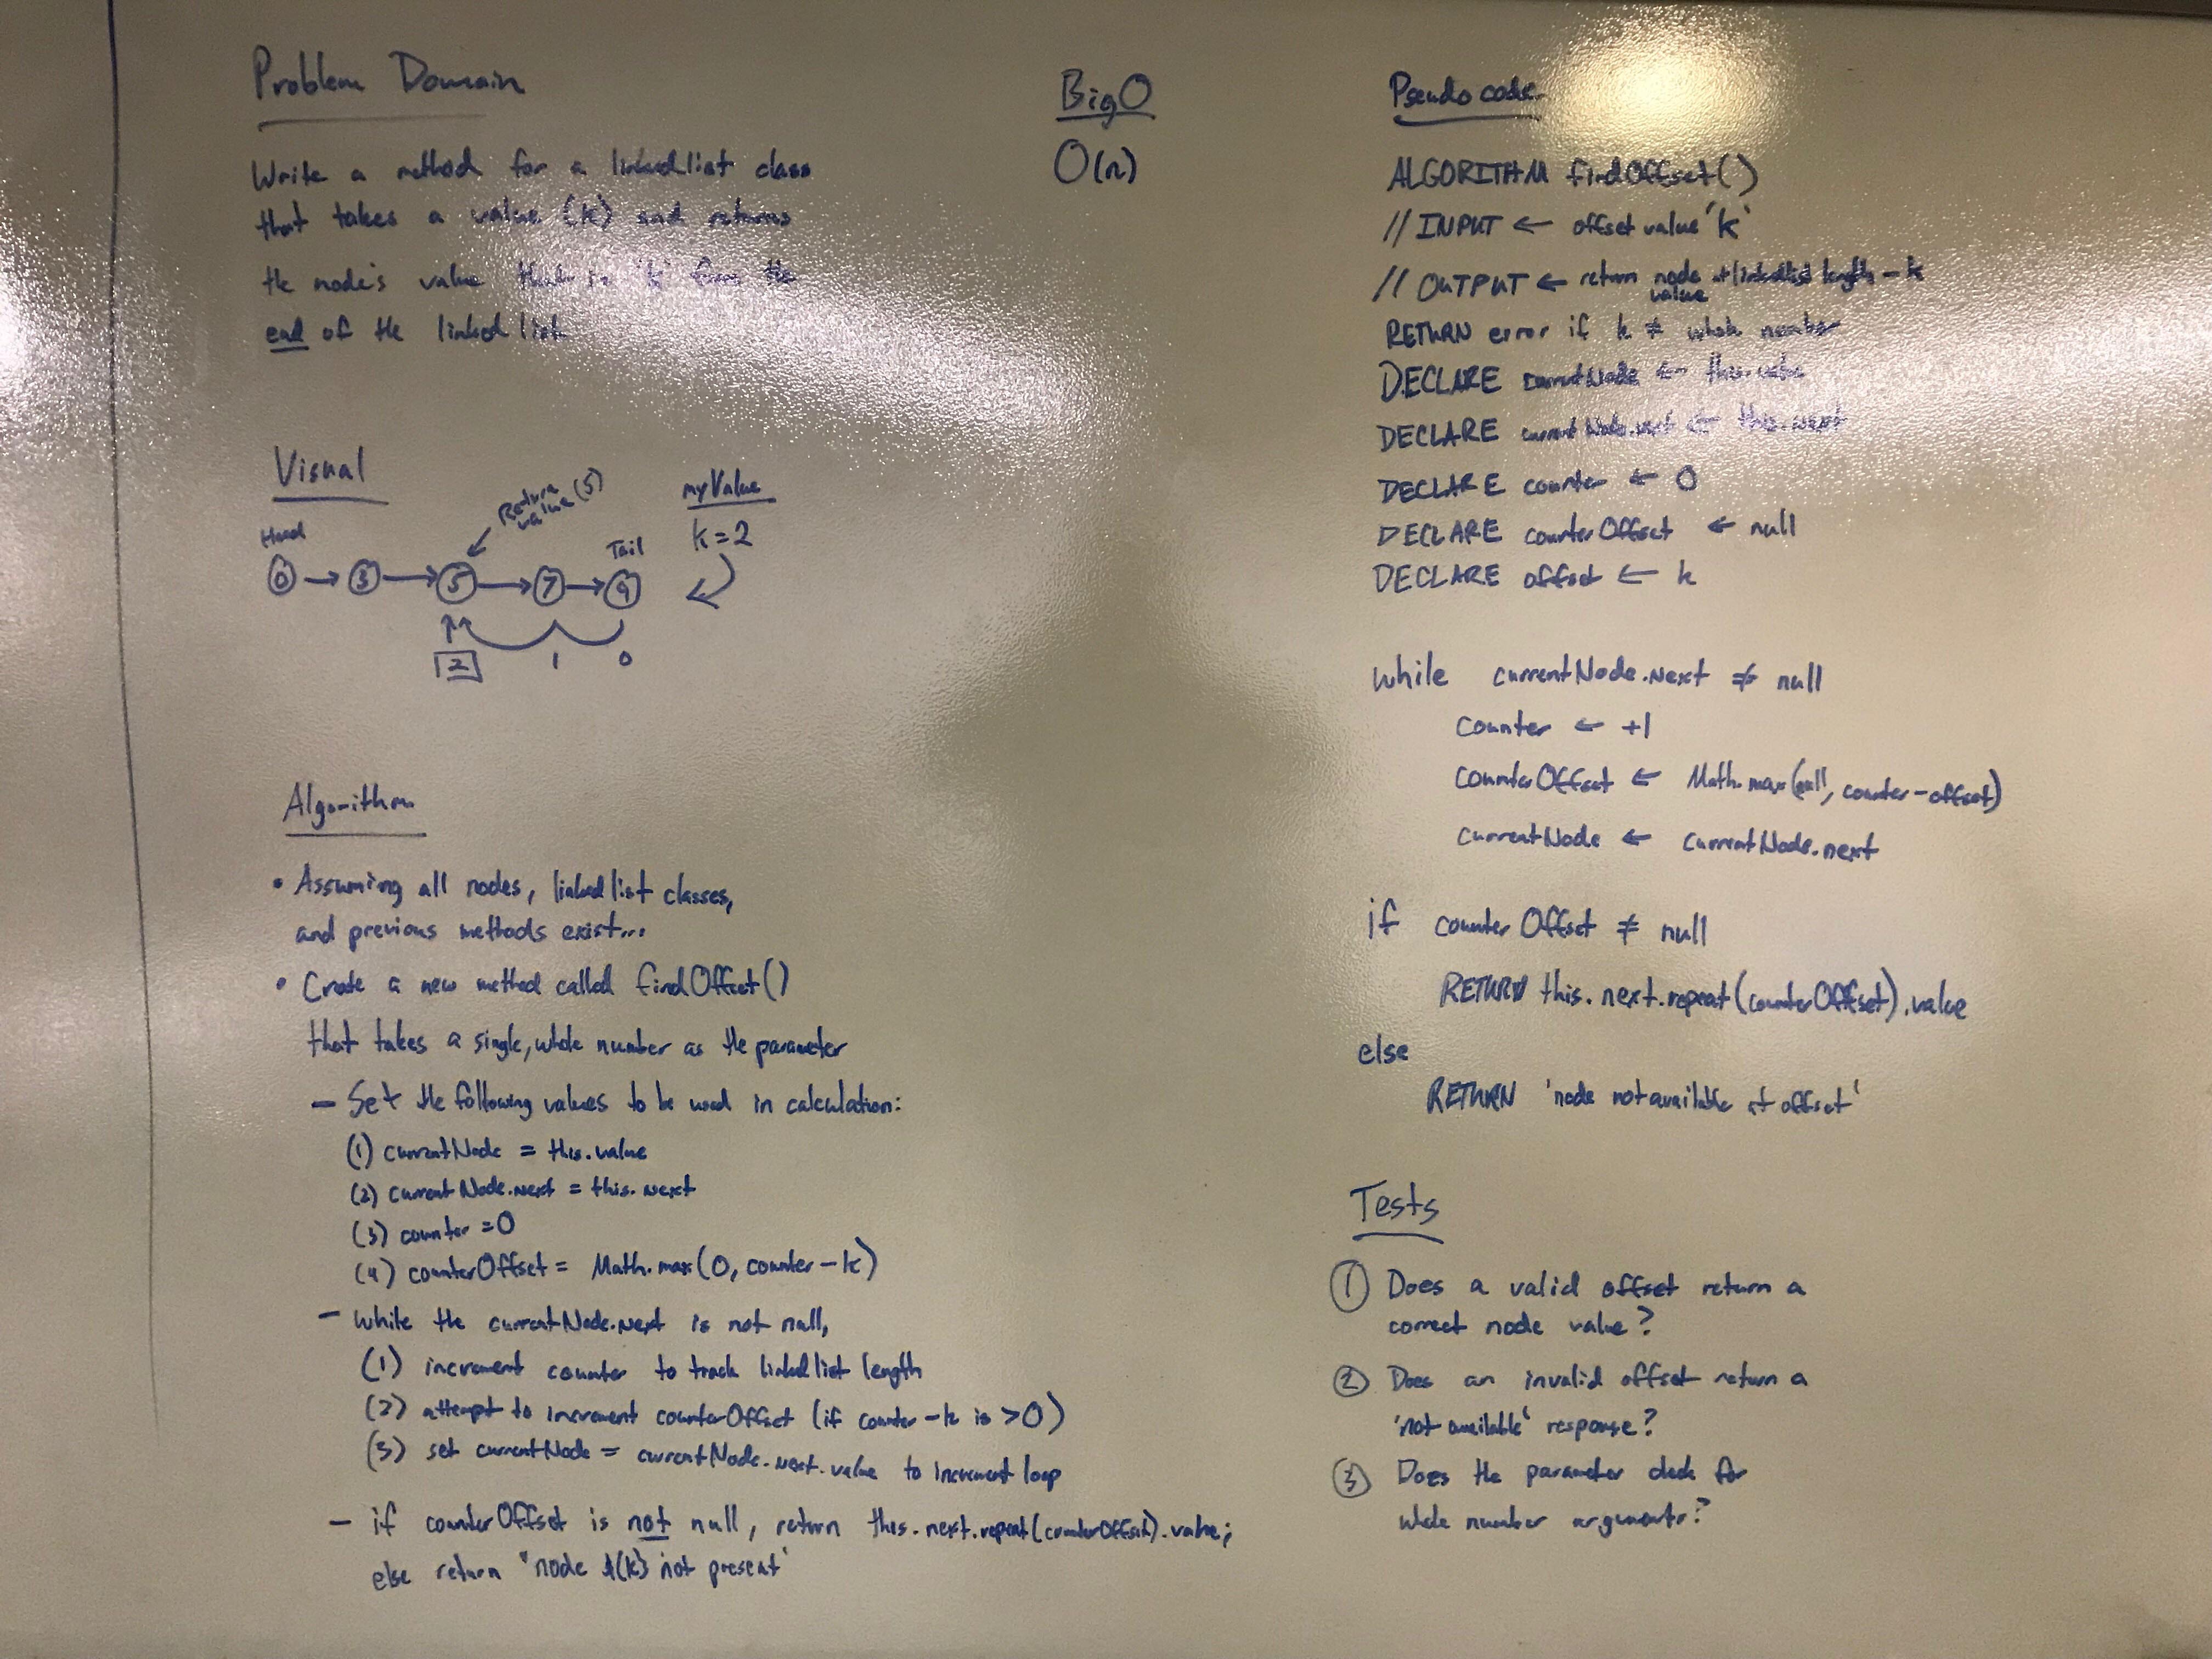 Problem Domain
Write a method for a linked list class
that takes a value (k) and returns
the node's value that is 'k' from the
end of the linked list
Visual
Head
Return
value (5)
myValue
k=2
Tail
0 → 3 → 5 → 7 → 9
2 1 0
Algorithm
• Assuming all nodes, linked list classes,
and previous methods exist...
• Create a new method called findOffset()
that takes a single, whole number as the parameter
– Set the following values to be used in calculation:
(1) currentNode = this.value
(2) currentNode.next = this.next
(3) counter = 0
(4) counterOffset = Math.max(0, counter – k)
– while the currentNode.next is not null,
(1) increment counter to track linked list length
(2) attempt to increment counterOffset (if counter – k is > 0)
(3) set currentNode = currentNode.next.value to increment loop
– if counterOffset is not null, return this.next.repeat(counterOffset).value;
else return 'node {k} not present'
Big O
O(n)
Pseudo code
ALGORITHM findOffset()
// INPUT ← offset value 'k'
// OUTPUT ← return node value at linked list length – k
RETURN error if k ≠ whole number
DECLARE currentNode ← this.value
DECLARE currentNode.next ← this.next
DECLARE counter ← 0
DECLARE counterOffset ← null
DECLARE offset ← k
while currentNode.next ≠ null
counter ← +1
counterOffset ← Math.max(null, counter – offset)
currentNode ← currentNode.next
if counterOffset ≠ null
RETURN this.next.repeat(counterOffset).value
else
RETURN 'node not available at offset'
Tests
① Does a valid offset return a
correct node value?
② Does an invalid offset return a
'not available' response?
③ Does the parameter check for
whole number arguments?